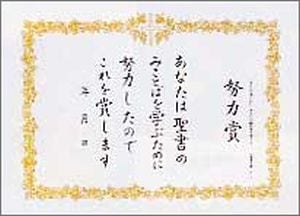 努力賞
あなたは聖書の
みことばを学ぶために
努力したので
これを賞します
年 月 日